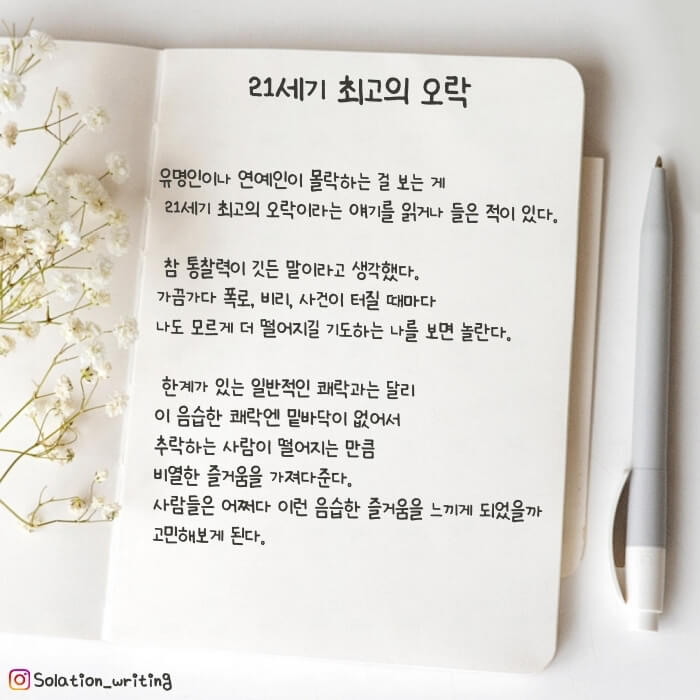 21세기 최고의 오락
유명인이나 연예인이 몰락하는 걸 보는 게
21세기 최고의 오락이라는 얘기를 읽거나 들은 적이 있다.
참 통찰력이 깃든 말이라고 생각했다.
가끔가다 폭로, 비리, 사건이 터질 때마다
나도 모르게 더 떨어지길 기도하는 나를 보면 놀란다.
한계가 있는 일반적인 쾌락과는 달리
이 음습한 쾌락엔 밑바닥이 없어서
추락하는 사람이 떨어지는 만큼
비열한 즐거움을 가져다준다.
사람들은 어쩌다 이런 음습한 즐거움을 느끼게 되었을까
고민해보게 된다.
Solation_writing